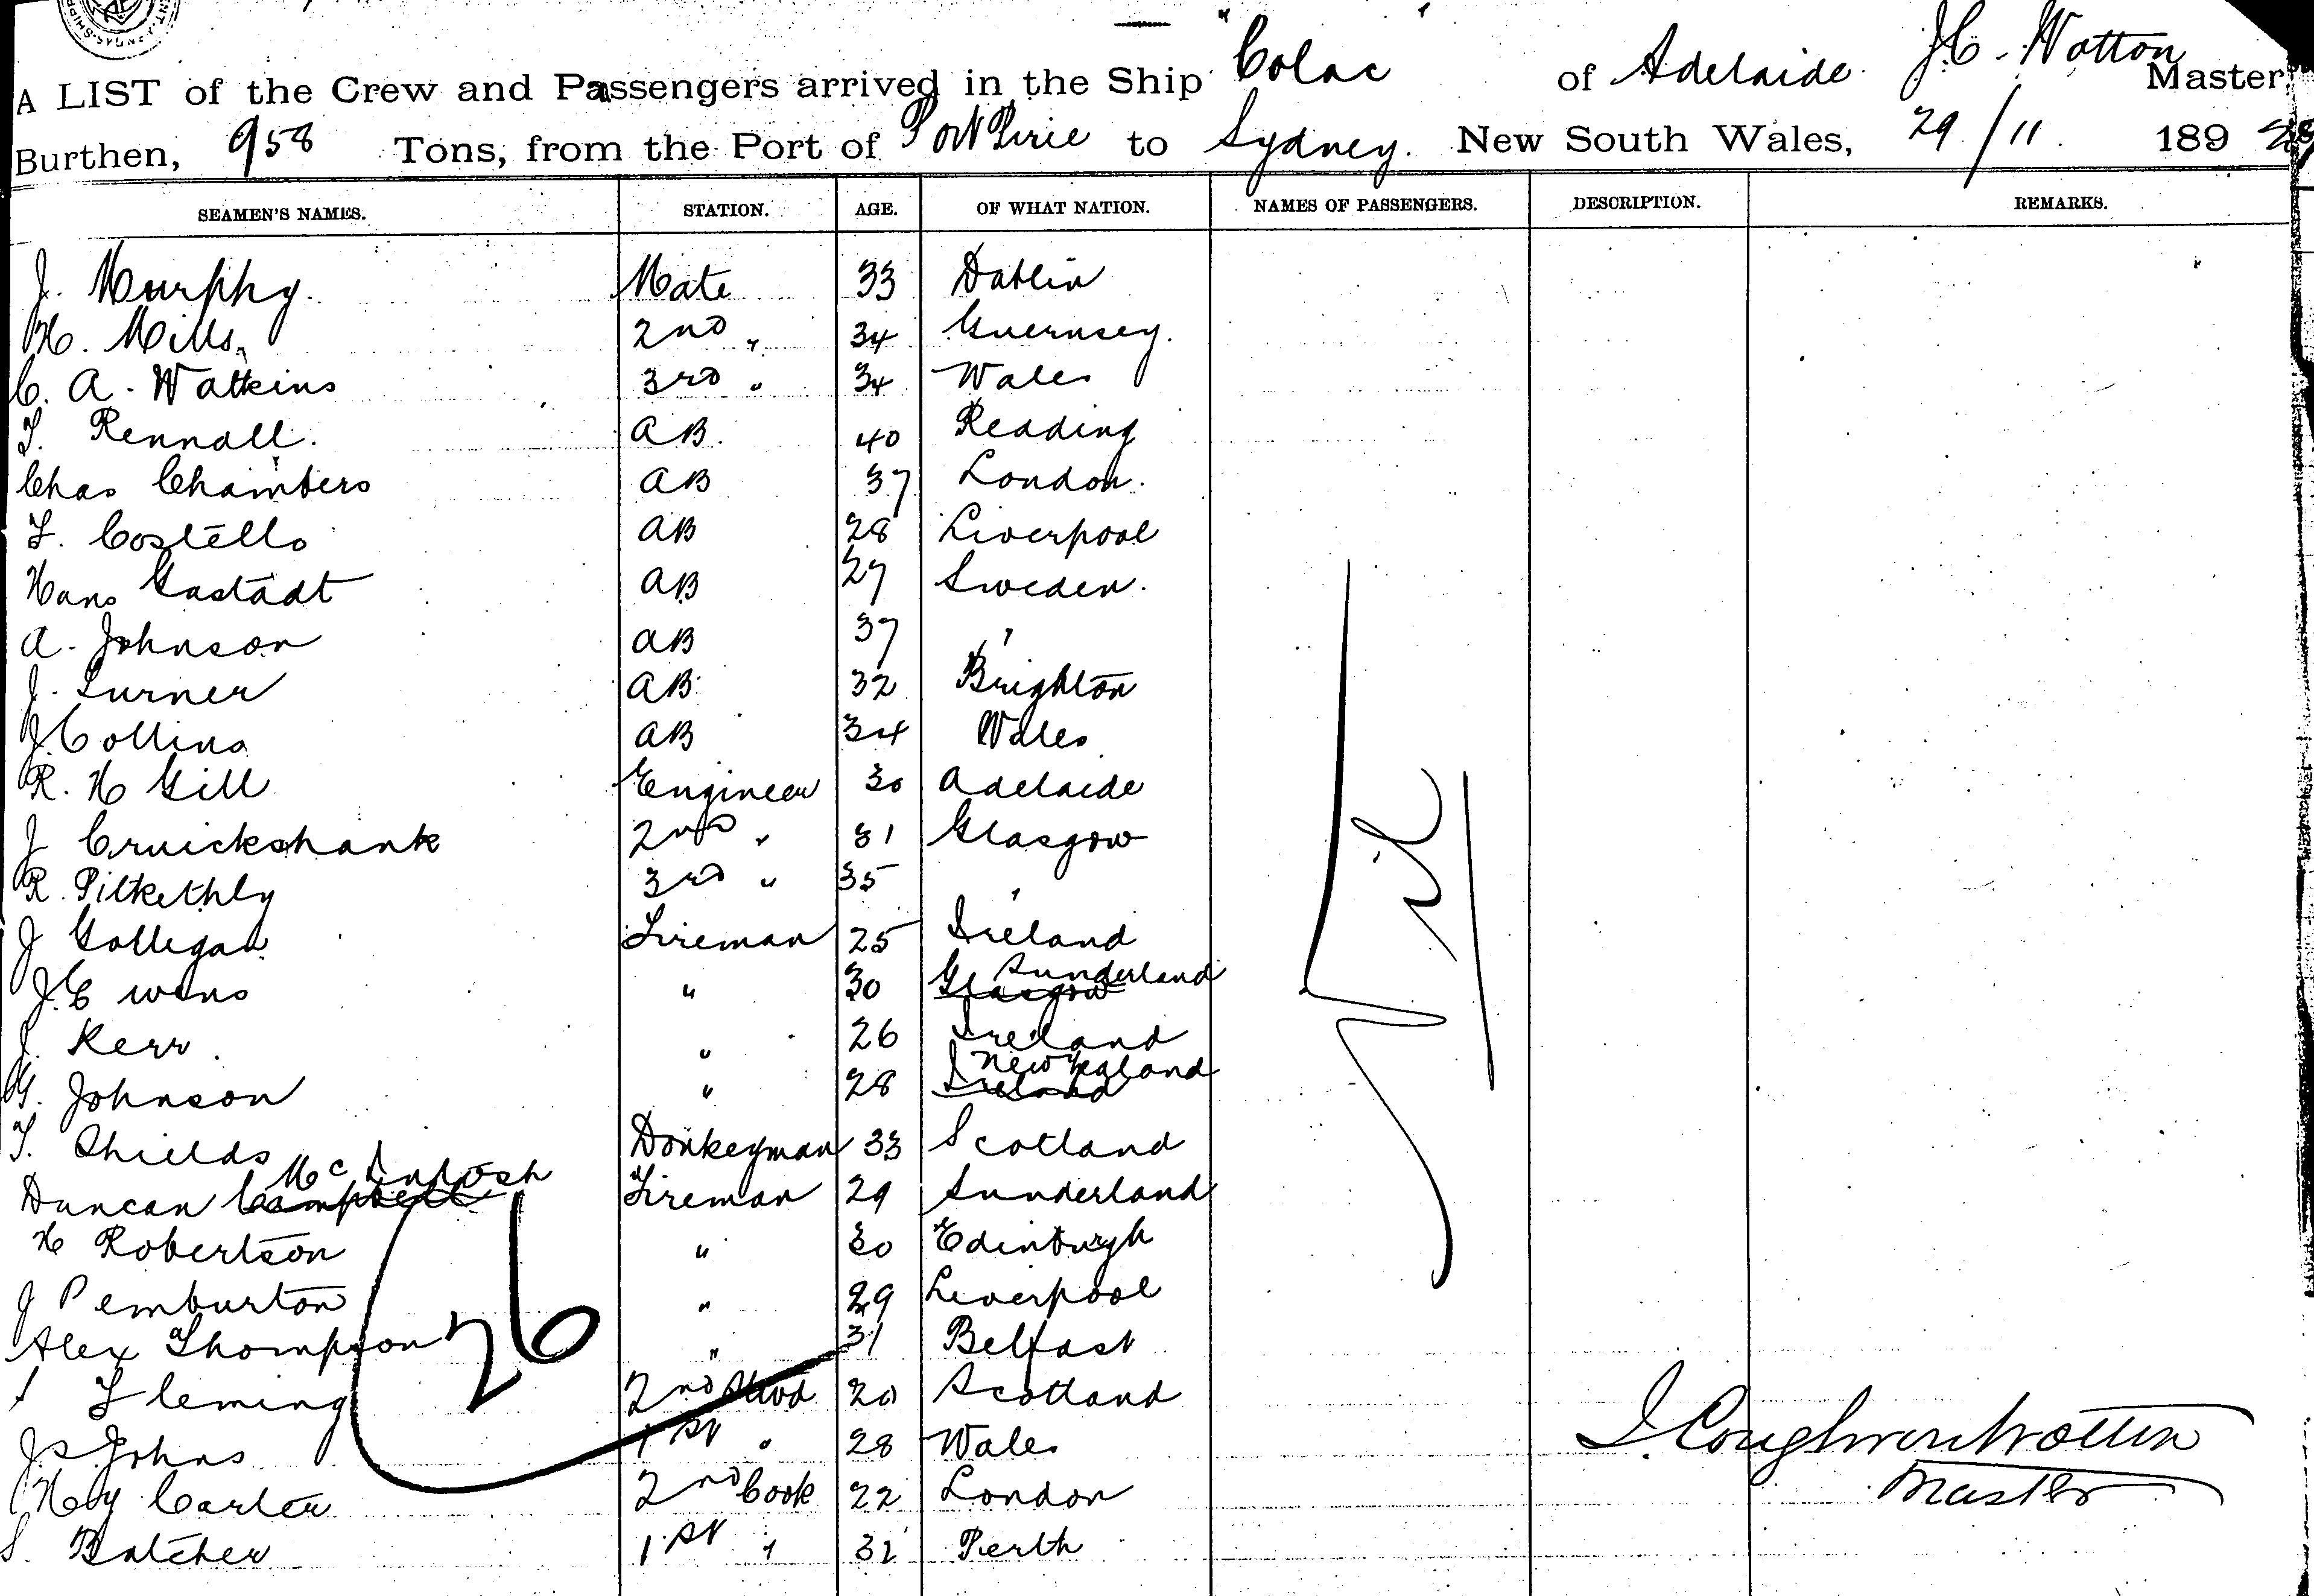 "Colac" J C. Wotton
A LIST of the Crew and Passengers arrived in the Ship of Adelaide Master
Burthen, 958 Tons, from the Port of Port Pirie to Sydney. New South Wales, 29/11 189
SEAMEN'S NAMES. STATION. AGE. OF WHAT NATION. NAMES OF PASSENGERS. DESCRIPTION. REMARKS.
J. Murphy. Mate 33 Dublin
H. Mills. 2nd " 34 Guernsey.
C. A. Watkins 3rd " 34 Wales
T. Rennall. AB. 40 Reading
Chas Chambers AB 37 London.
F. Costello AB 28 Liverpool
Hans Gastadt AB 27 Sweden.
A. Johnson AB 37 "
J. Turner AB 32 Brighton
J Collins AB 34 Wales
R. H Gill Engineer 30 Adelaide
J Cruickshank 2nd " 31 Glasgow
R. Pitkethly 3rd " 35 "
J Galligan Fireman 25 Ireland
J. Ewens " 30 Glasgow Sunderland
J. Kerr. " 26 Ireland
G. Johnson " 28 Ireland New Zealand
T. Shields Donkeyman 33 Scotland
Duncan Campbell McIntosh Fireman 29 Sunderland
H Robertson " 30 Edinburgh
J Pemburton " 29 Liverpool
Alex Thompson " 31 Belfast
Fleming 2nd Stwd 20 Scotland
J Johns 1st " 28 Wales
Hy Carter 2nd Cook 22 London
S. Butcher 1st " 32 Perth
26
Nil
Master